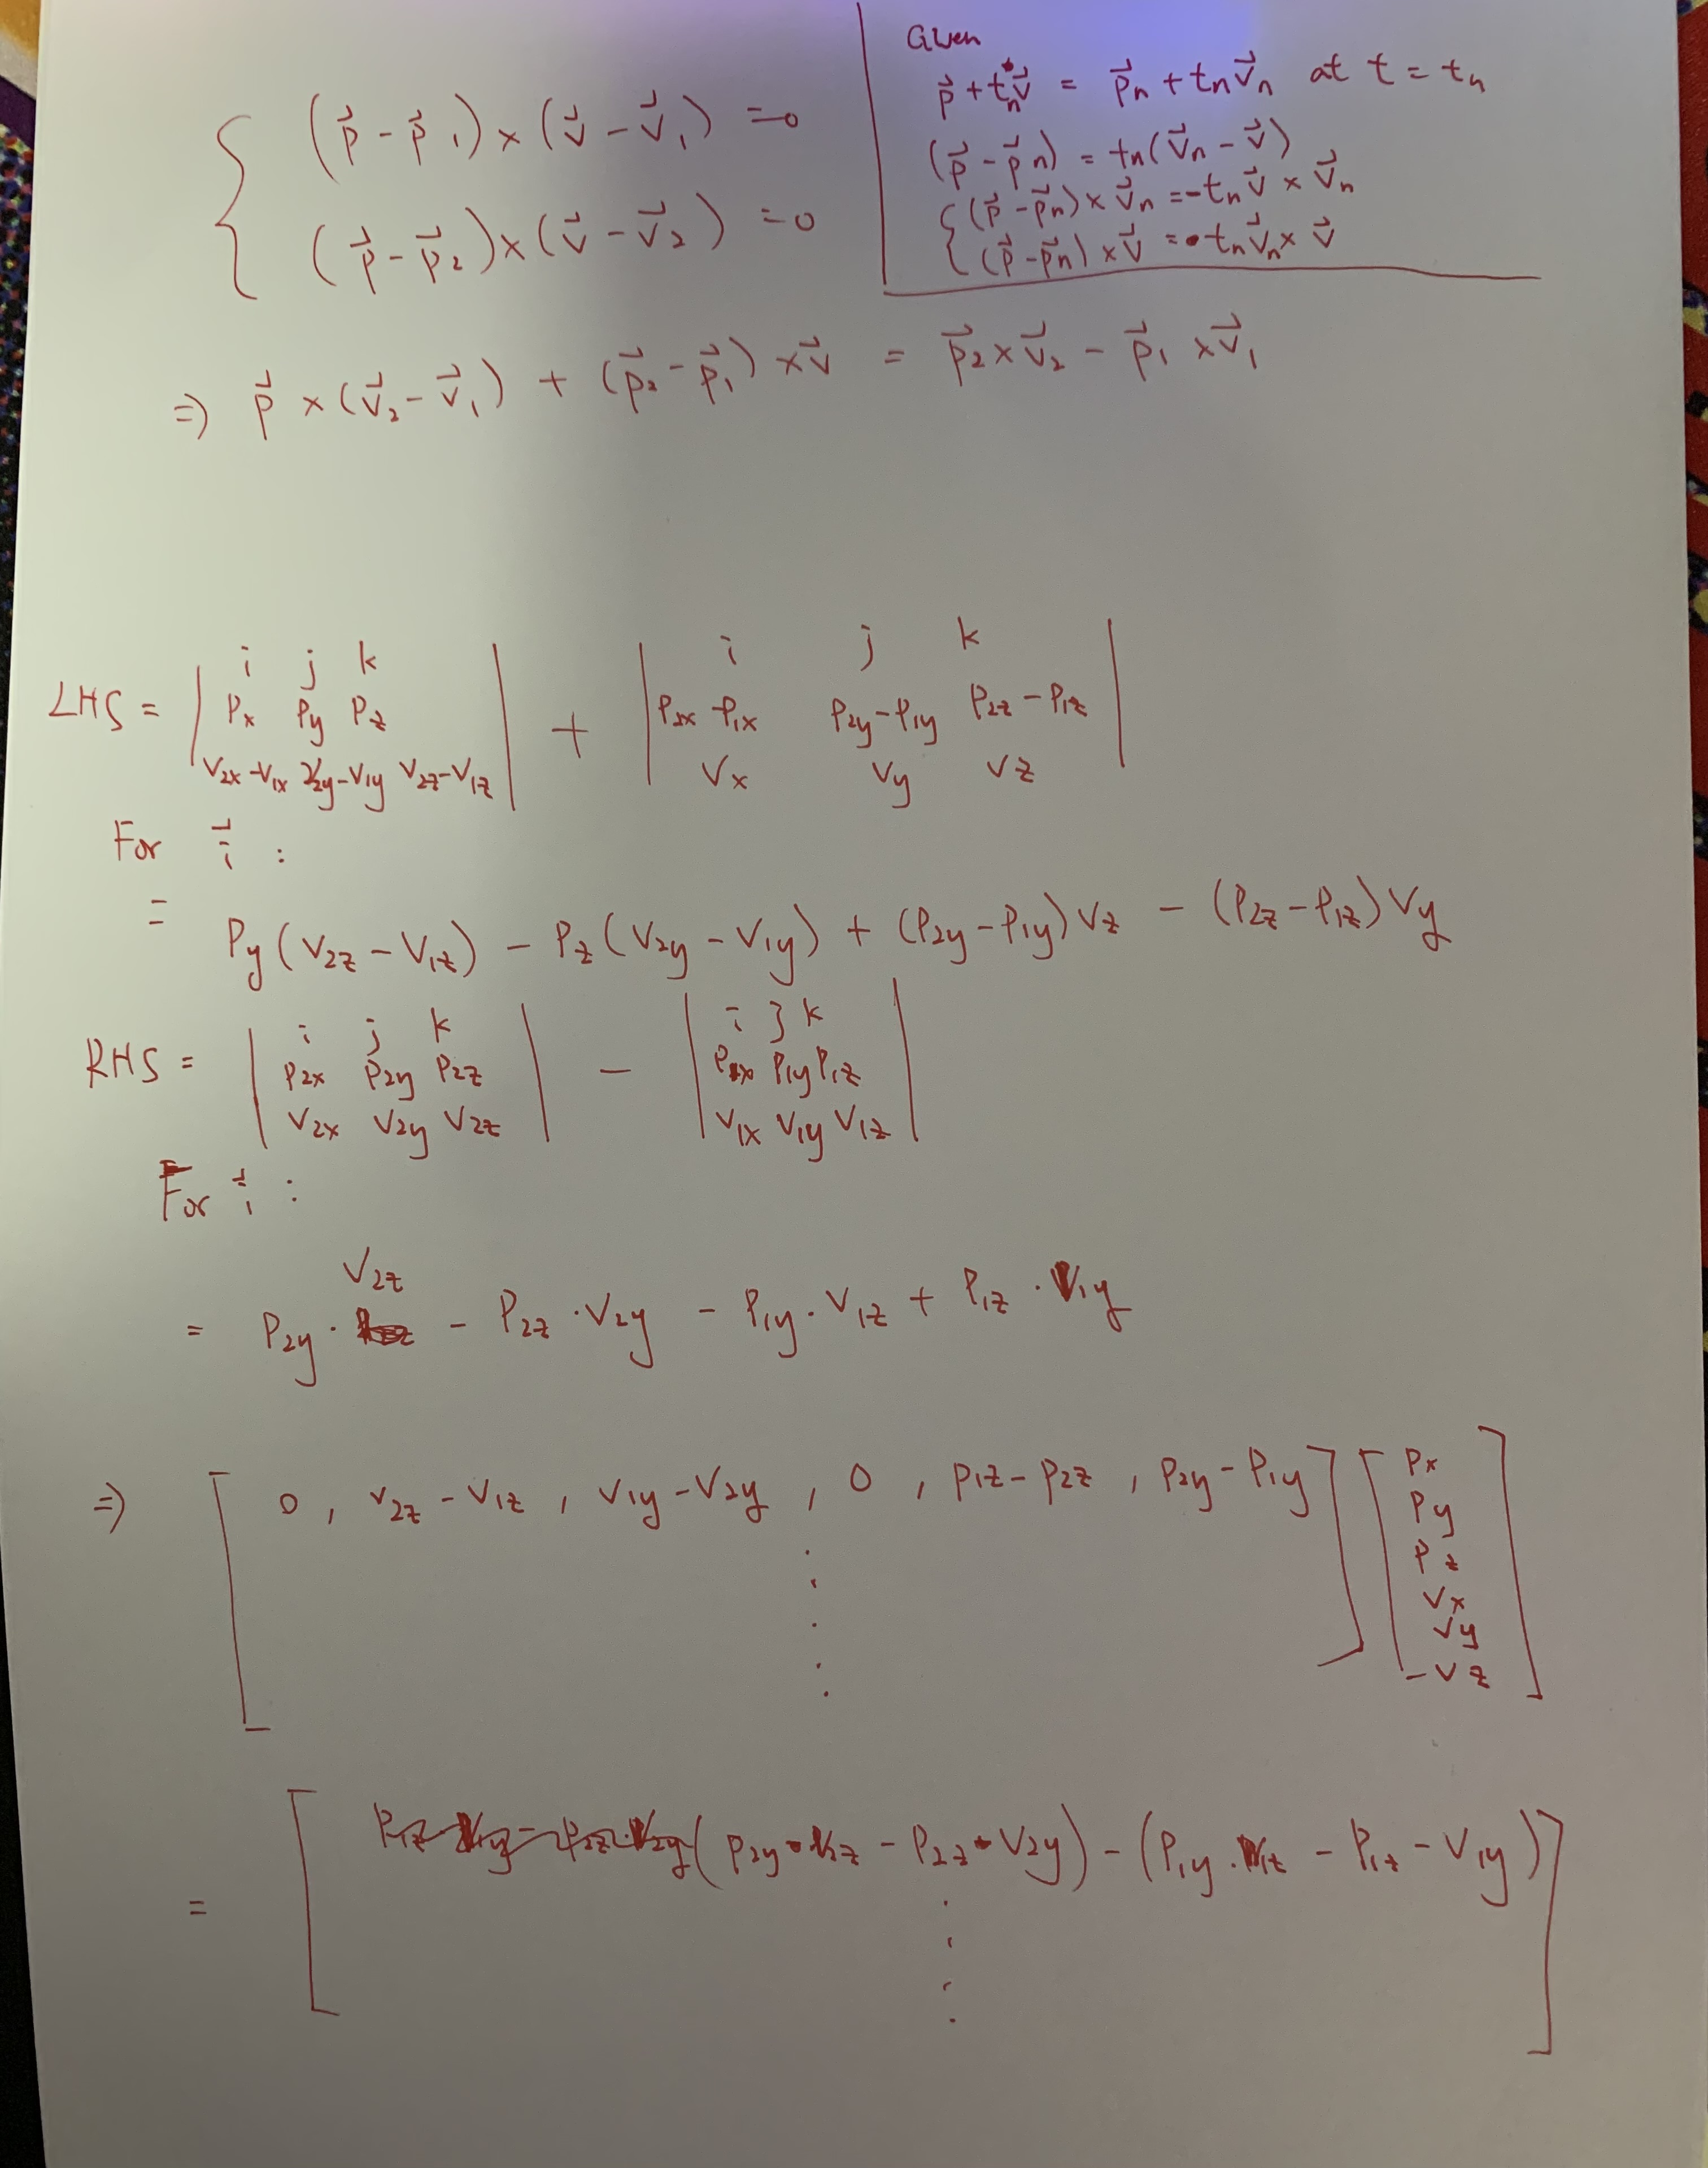 (p⃗ - p⃗₁) × (v⃗ - v⃗₁) = 0
(p⃗ - p⃗₂) × (v⃗ - v⃗₂) = 0
Given
p⃗ + tₙv⃗ = p⃗ₙ + tₙv⃗ₙ at t = tₙ
(p⃗ - p⃗ₙ) = tₙ(v⃗ₙ - v⃗)
(p⃗ - p⃗ₙ) × v⃗ₙ = -tₙv⃗ × v⃗ₙ
(p⃗ - p⃗ₙ) × v⃗ = tₙv⃗ₙ × v⃗
⇒ p⃗ × (v⃗₂ - v⃗₁) + (p⃗₂ - p⃗₁) × v⃗ = p⃗₂ × v⃗₂ - p⃗₁ × v⃗₁
i j k i j k
LHS = | Px Py Pz | + | P2x - P1x P2y - P1y P2z - P1z |
V2x - V1x V2y - V1y V2z - V1z Vx Vy Vz
For i⃗ :
= Py (V2z - V1z) - Pz (V2y - V1y) + (P2y - P1y) Vz - (P2z - P1z) Vy
i j k i j k
RHS = | P2x P2y P2z | - | P1x P1y P1z |
V2x V2y V2z V1x V1y V1z
For i⃗ :
V2z
= P2y · - P2z · V2y - P1y · V1z + P1z · V1y
⇒ [ 0 , V2z - V1z , V1y - V2y , 0 , P1z - P2z , P2y - P1y ] [ Px
Py
Pz
Vx
Vy
Vz ]
= [ (P2y · V2z - P2z · V2y) - (P1y · V1z - P1z - V1y) ]